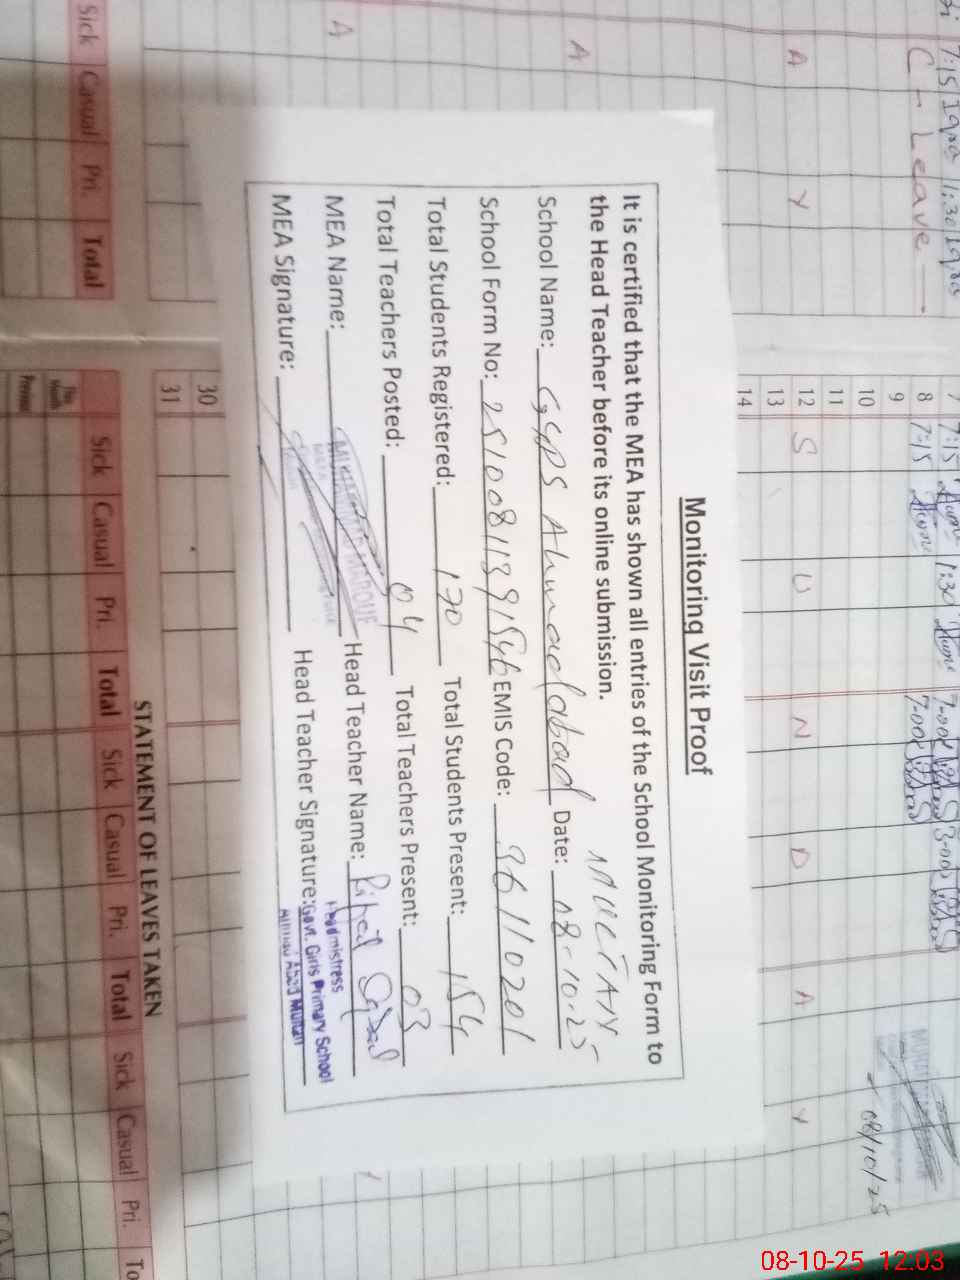 Monitoring Visit Proof
It is certified that the MEA has shown all entries of the School Monitoring Form to
the Head Teacher before its online submission.
MULTAN
School Name: GGPS Ahmadabad Date: 08-10-25
School Form No: 25100811391546 EMIS Code: 36110201
Total Students Registered: 170 Total Students Present: 154
Total Teachers Posted: 04 Total Teachers Present: 03
MEA Name: Head Teacher Name:
MEA Signature: Head Teacher Signature:
Headmistress
Govt. Girls Primary School
Ahmad Abad Multan
C - Leave
A Y
A
A
7 7:15 1:30 7:00 3:00
8 7:15 7:00
9
10
11
12 S U N D A Y
13
14
08/10/25
30
31
Sick Casual Pri. Total
Sick Casual Pri. Total Sick Casual Pri. Total Sick Casual Pri. To
This Month
Previous
STATEMENT OF LEAVES TAKEN
08-10-25 12:03